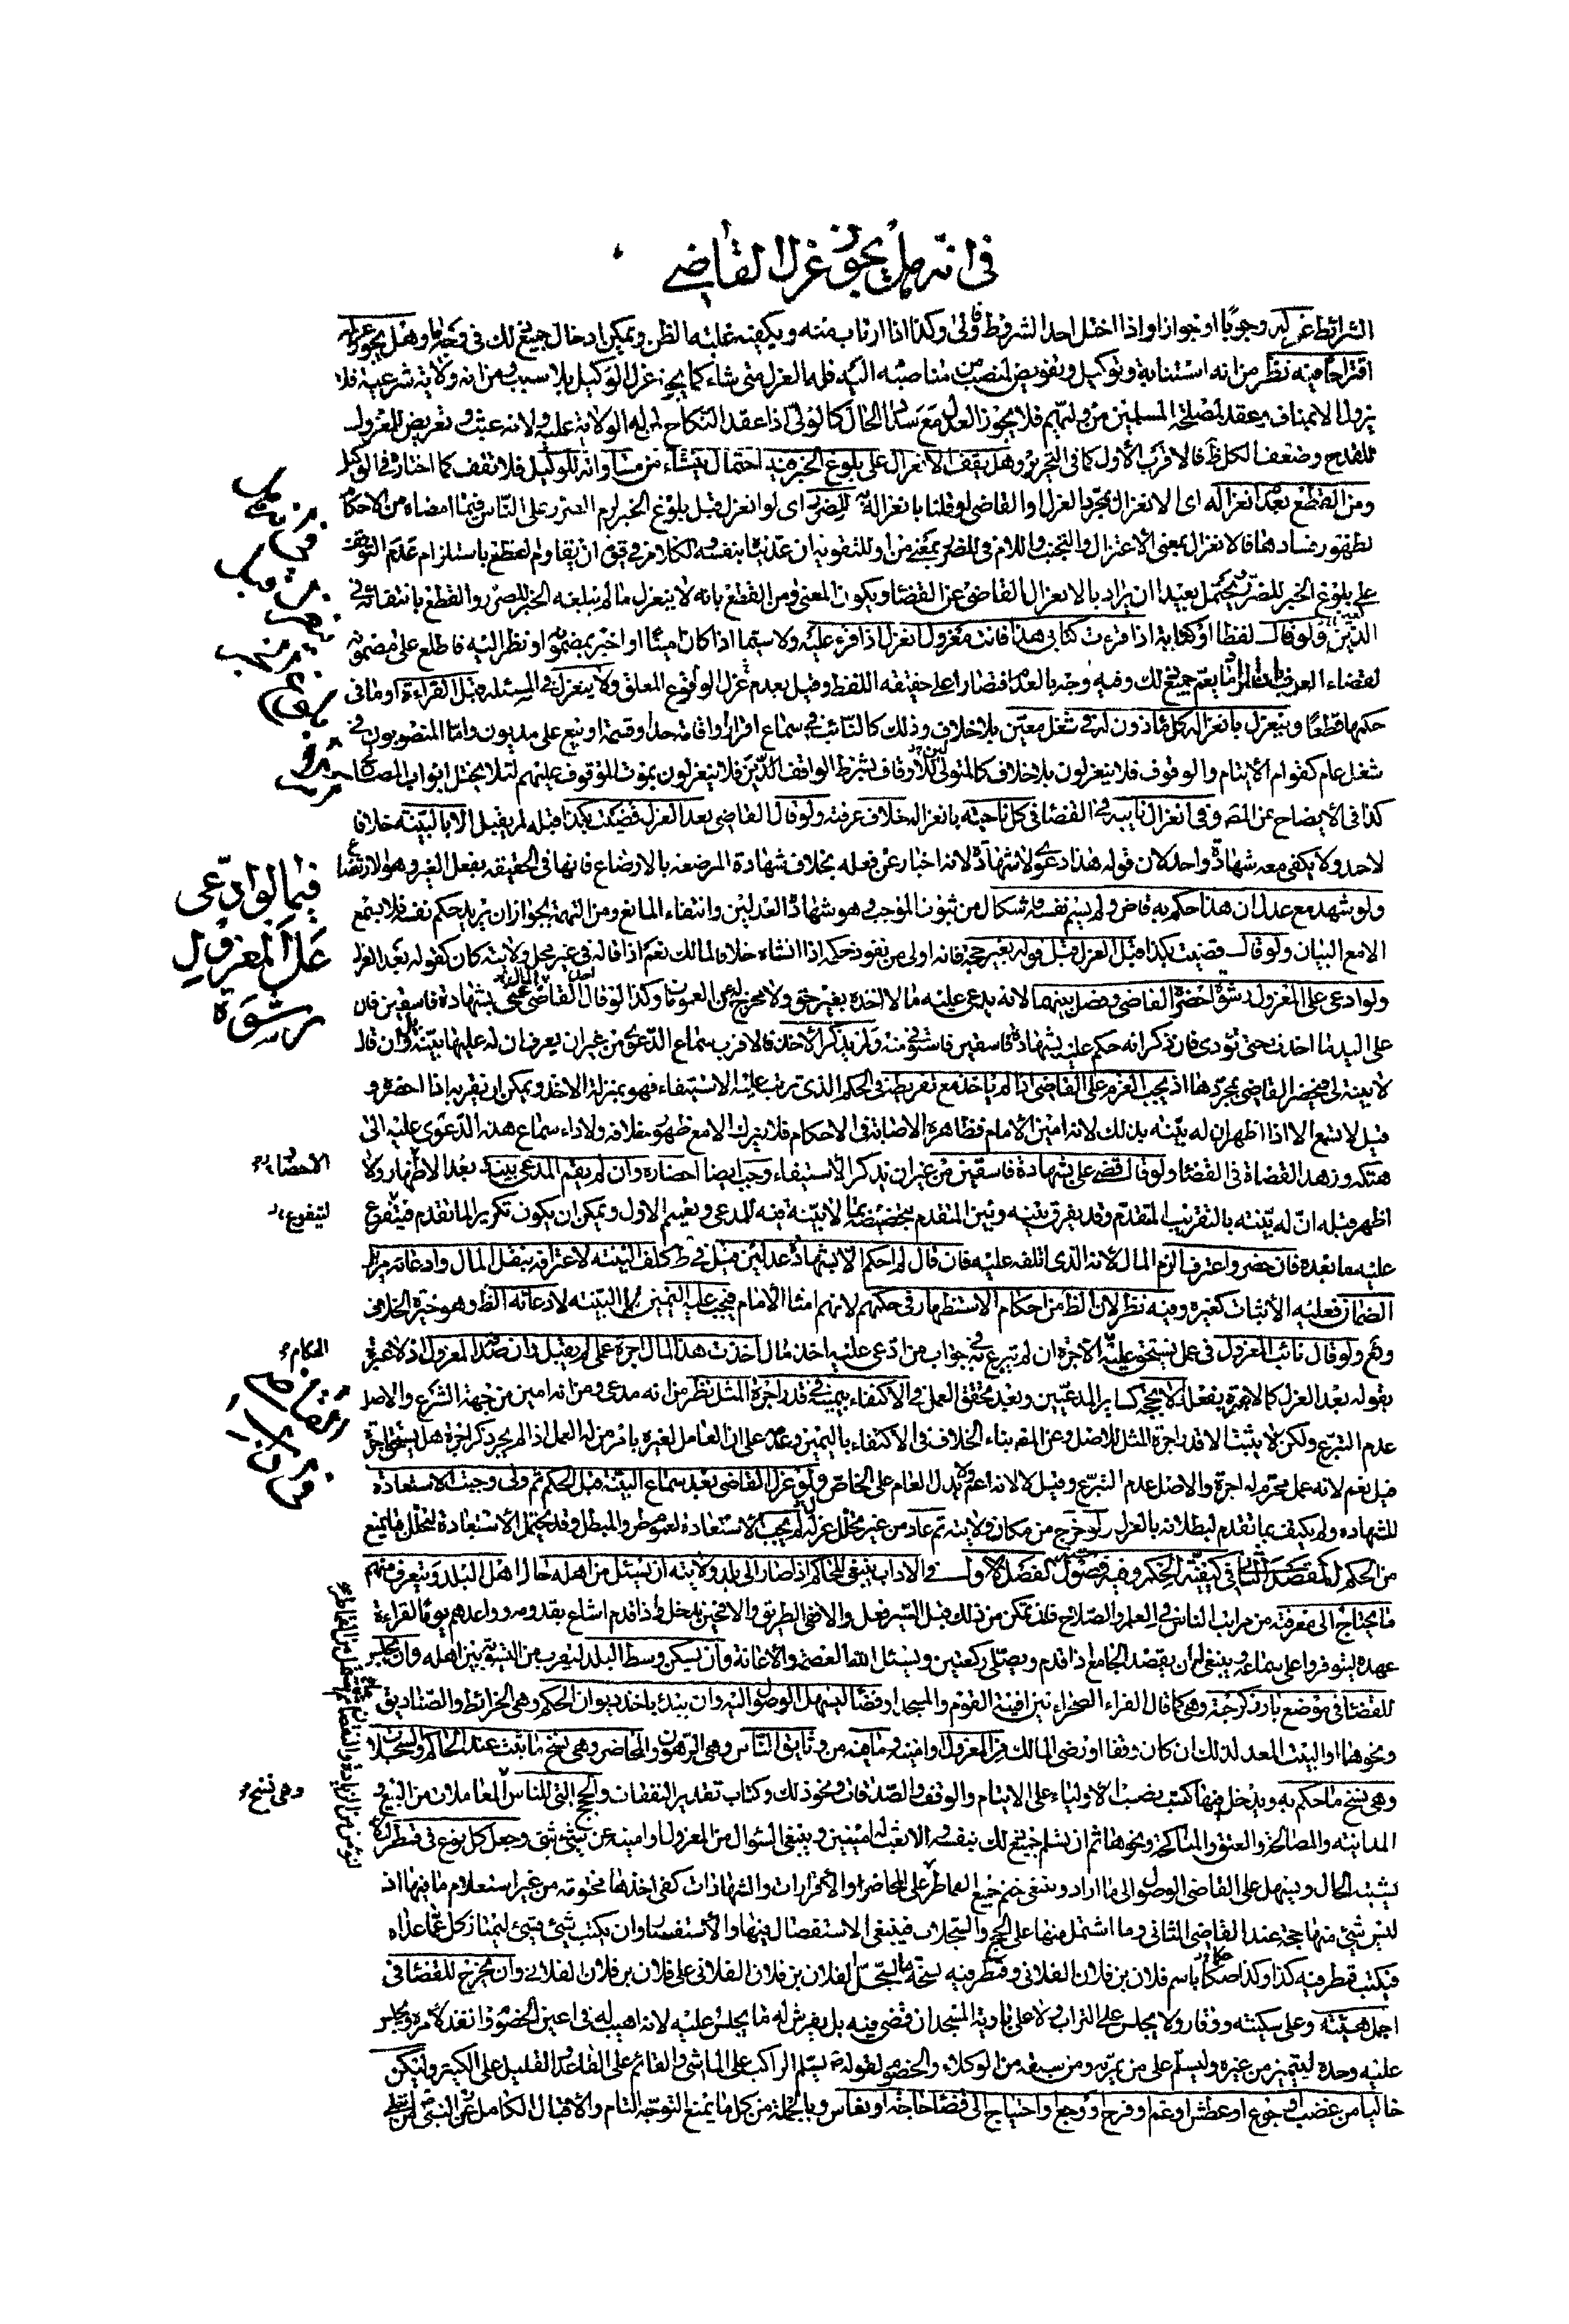 في انه هل يجوز عزل القاضي
الشرائط عزله وجوبا او جوازا واذا اختل احد الشروط اولى وكذا اذا ارتاب منه ويكفيه غلبة الظن ويمكن ادخال جميع ذلك في وهل يجوز عزله
اقتراحا فيه نظر من انه استنابة وتوكيل وتفويض لمنصب من مناصبه اليه فله العزل متى شاء كما يجوز عزل الوكيل بلا سبب ومن انه ولاية شرعية فلا
يزول الا بمناف عقد لمصلحة المسلمين فلا يجوز العدل مع سداد الحال كالولي اذا عقد النكاح لمن له الولاية عليه ولانه عبث وتعريض للمعزول
للقدح وضعف الكل ظ فالاقرب الأول كما في التحرير وهل يقف الانعزال على بلوغ الخبر فيه احتمال ينشاء من مساواته للوكيل فلا تقف كما اختاره في الوكيل
ومن القطع بعدم انعزاله اي الانعزال بمجرد العزل والقاضي لو قلنا بانعزاله به للضرر اي لو انعزل قبل بلوغ الخبر لزم الضرر على الناس فيما امضاه من الاحكام
لظهور فسادها فالانعزال بمعنى الاعتزال والتجنب واللام في للضرر بمعنى من او للتقوية ان عدّيناه بنفسه والكلام في قوة ان يقاوم القطع باستلزام عدم التوقف
على بلوغ الخبر للضرر ويحتمل بعيدا ان يراد بالانعزال انعزال القاضي عن القضاء ويكون المعنى ومن القطع بانه لا ينعزل ما لم يبلغه الخبر للضرر والقطع بانتفائه في
الدين ولو قال لفظا او كتابة اذا قرءت كتابي هذا فانت معزول انعزل اذا قرء عليه ولا سيما اذا كان اميا او اخبر بمضمونه او نظر اليه فاطلع على مضمونه
لقضاء العرف بان المراد ما يعم جميع ذلك وفيه وجه بالعدم اقتصارا على حقيقة اللفظ وقيل بعدم عزل الوقوع المعلق ولا ينعزل في المسئلة قبل القراءة او ما في
حكمها قطعا وينعزل بانعزاله كل مأذون له في شغل معين بلا خلاف وذلك كالنائب في سماع اقرار او اقامة حد او قسمة او بيع على مديون واما المنصوبون في
شغل عام كقوام الأيتام والوقوف فلا ينعزلون بلا خلاف كالمتولي للاوقاف بشرط الواقف الذين فلا ينعزلون بموت الموقوف عليهم لئلا يختل ابواب المصالح
كذا في الأيضاح عن المص وفي انعزال نايبه في القضاء في كل ناحية بانعزاله خلاف عرفته ولو قال القاضي بعد العزل قضيت بكذا قبله لم يقبل الا بالبينة خلافا
لاحد ولا يكفي معه شهادة واحد لان قوله هذا دعوى لا شهادة لانه اخبار عن فعله بخلاف شهادة المرضعة بالارضاع فانها في الحقيقة بفعل الغير وهو الارتضاع
ولو شهد مع عدل ان هذا حكم به قاض ولم يسم نفسه فاشكال من ثبوت الموجب وهو شهادة العدلين وانتفاء المانع ومن التهمة بجواز ان يريد حكم نفسه فلا يسمع
الا مع البيان ولو قال قضيت بكذا قبل العزل قبل قوله بغير حجة فانه اولى من نفوذ حكمه اذا انشاه خلافا لمالك نعم اذا قاله في غير محل ولايته كان كقوله بعد العزل
ولو ادعى على المعزول رشوة احضره القاضي وفصل بينهما لانه يدعي عليه مالا اخذه بغير حق ولا مخرج له عن العموم وكذا لو قال القاضي اخذ المال عني بشهادة فاسقين فان
على اليد ما اخذت حتى تؤدى فان ذكر انه حكم عليه بشهادة فاسقين فاستوفى منه ولم يذكر الأخذ فالاقرب سماع الدعوى من غير ان يعرف ان له عليها بينة بل وان قال
لا بينة لي فيحضر القاضي بمجردها اذ يجب الغرم على القاضي اذا لم ياخذ مع تفريطه في الحكم الذي ترتب عليه الاستيفاء فهو بمنزلة الاخذ ويمكن ان يقر به اذا احضره و
قيل لا تسمع الا اذا اظهر ان له بينة بذلك لانه امين الأمام فظاهره الاصابة في الاحكام فلا يترك الا مع ظهور خلافه ولاداء سماع هذه الدعوى عليه الى
هتكه وزهد القضاة في القضاء ولو قال قضى على بشهادة فاسقين من غير ان يذكر الأستيفاء وجب ايضا احضاره وان لم يقم المدعي بينة بعد الاظهار ولا
اظهر قبله ان له بينة بالتقريب المتقدم وقد يفرق بينه وبين المتقدم بتخصيصه بما لا بينة فيه للمدعي وتعميم الاول ويمكن ان يكون تكريرا لما تقدم فيتفرع
عليه ما بعده فان حضر واعترف الزم المال لانه الذي اتلفه عليه فان قال لم احكم الا بشهادة عدلين قيل في ط كلف البينة لاعترافه بنقل المال وادعائه مزيل
الضمان فعليه الأثبات كغيره وفيه نظر لان الظ من احكام الاستظهار في حكمهم لانهم امناء الأمام فيجب عليه اليمين لا البينة لادعائه الظ وهو خيرة الخلاف
ولو قال نائب المعزول في عمل يستحق عليه الاجرة ان لم يتبرع به في جواب من ادعى عليه اخذ مال اخذت هذا المال اجرة عملي لم يقبل وان صدقه المعزول اذ لا عبرة
بقوله بعد العزل كما لا عبرة بفعله الا بحجة كساير المدعيين وبعد تحقق العمل في الأكتفاء بيمينه في قدر اجرة المثل نظر من انه مدعي ومن انه امين من جهة الشرع والاصل
عدم التبرع ولكن لا يثبت الا قدر اجرة المثل للاصل وعن المص بناء الخلاف في الأكتفاء باليمين وعدمه على ان العامل لغيره بامر من له العمل اذا لم يجر ذكر اجرة هل يستحق اجرة
قيل نعم لانه عمل محترم له اجرة والاصل عدم التبرع وقيل لا لانه اعم ولا يدل العام على الخاص ولو عزل القاضي بعد سماع البينة قبل الحكم ثم ولي وجبت الاستعادة
للشهادة ولم يكتف بما تقدم لبطلانه بالعزل ولو خرج من مكان ولايته ثم عاد من غير تخلل عزل لم يجب الأستعادة لعدم المبطل وقد يحتمل الأستعادة لتخلل ما يمنع
من الحكم المقصد الثاني في كيفية الحكم وفيه فصول الفصل الأول في الاداب ينبغي للحاكم اذا صار الى بلد ولايته ان يسئل من اهله حال اهل البلد ويتعرف منهم
ما يحتاج الى معرفته من مراتب الناس في العلم والصلاح فان تمكن من ذلك قبل السير فعل والا ففي الطريق والا فحين يدخل واذا قدم اشاع بقدومه وواعدهم يوما لقراءة
عهده ليتوفروا على سماعه وينبغي له ان يقصد الجامع اذا قدم ويصلي ركعتين ويسئل الله العصمة والأعانة وان يسكن وسط البلد ليقرب من التسوية بين اهله وان يجلس
للقضاء في موضع بارز كرحبة وهي كما قال الفراء الصحراء بين افنية القوم والمسجد او فضاء ليسهل الوصول اليه وان يبدء باخذ ديوان الحكم وهي الخرائط والصناديق
ونحوها او البيت المعد لذلك ان كان وقفا او رضي المالك من المعزول او امينه وما فيه من وثايق الناس وهي الرهون والمحاضر وهي نسخ ما ثبت عند الحاكم والسجلات
وهي نسخ ما حكم به ويدخل فيها كتب نصب الأولياء على الايتام والوقف والصدقات ونحو ذلك وكتاب تقدير النفقات والحجج التي للناس في المعاملات من البيع و
المداينة والمصالحة والعتق والمناكحة ونحوها ثم ان يسلم جميع ذلك بنفسه والا بعث له امينين وينبغي السئوال من المعزول او امينه عن شيئ شيئ وجعل كل نوع في قمطر لئلا
يشتبه الحال ويسهل على القاضي الوصول الى ما اراد وينبغي ختم جميع القماطر على المحاضر والأقرارات والشهادات كفى اخذها مختومة من غير استعلام ما فيها اذ
ليس شيئ منها حجة عند القاضي الثاني وما اشتمل منها على الحجج والسجلات فينبغي الاستقصال فيها والأستفسار وان يكتب شيئ شيئ ليمتاز كل عما عداه
فيكتب قمطر فيه كذا وكذا صكا باسم فلان بن فلان الفلاني وقمطر فيه نسخة ما سجل لفلان بن فلان الفلاني على فلان بن فلان الفلاني وان يخرج للقضاء في
اجمل هيئته وعلى سكينته ووقار ولا يجلس على التراب ولا على بارية المسجد ان قضى فيه بل يفرش له ما يجلس عليه لانه اهيب له في اعين الخصوم وانفذ لامره ويجلس
عليه وحده ليتميز من غيره وليسلم على من يمر به ومن سبقه من الوكلاء والخصوم لقوله ص يسلم الراكب على الماشي والقائم على القاعد والقليل على الكثير وليكن
خاليا من غضب او جوع او عطش او غم او فرح او وجع واحتياج الى قضاء حاجة او نعاس وبالجملة من كل ما يمنع التوجه التام والأقبال الكامل عن النبي
فيما لو ادعى
على المعزول
رشوة
الاحضار
ليتفرع
الحكام
وهي نسخ